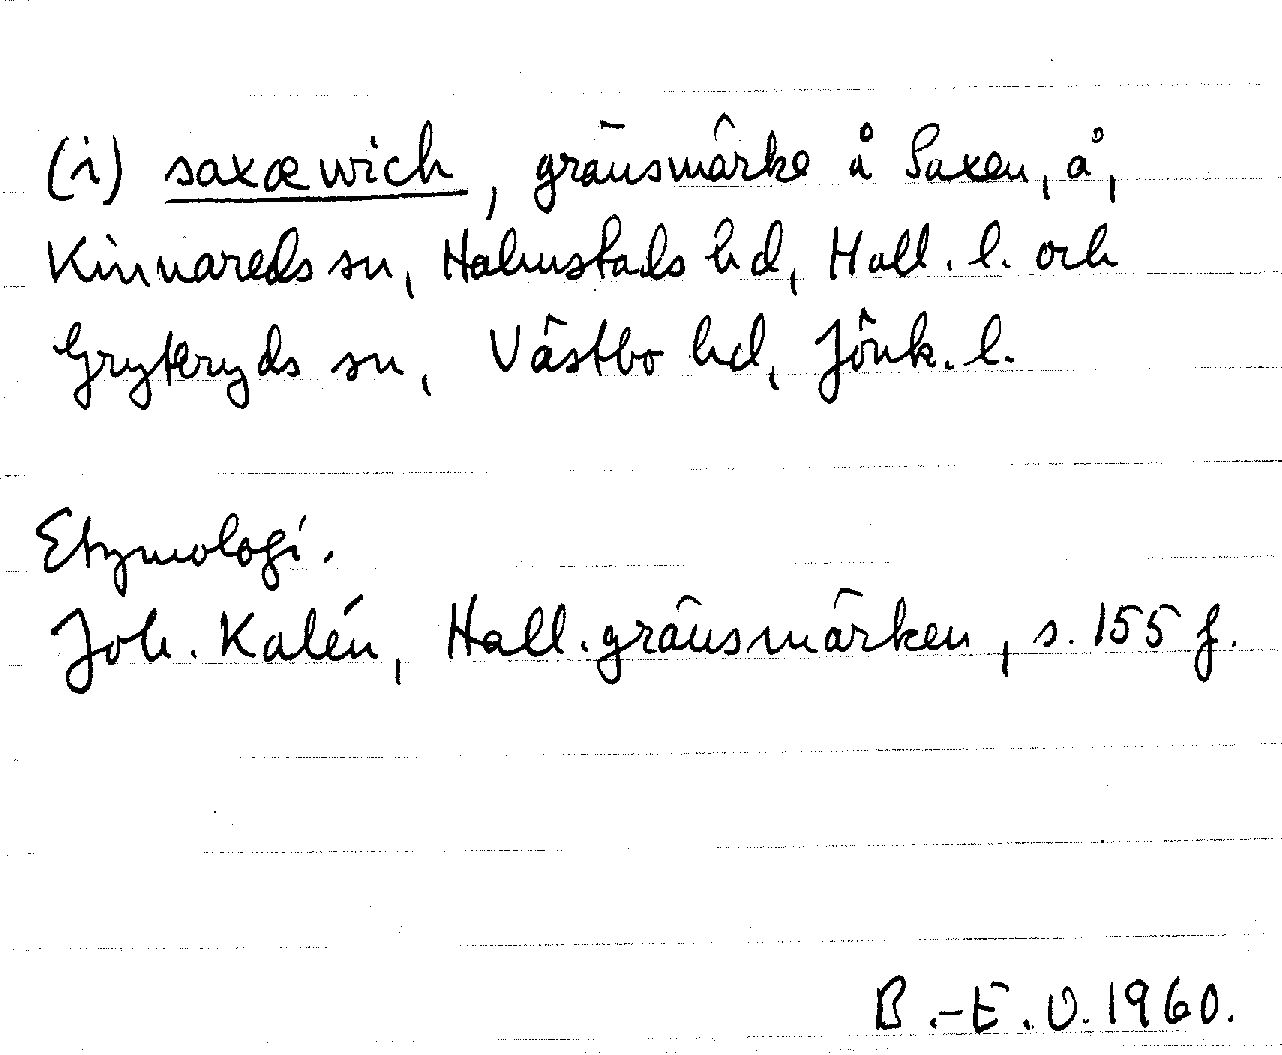 (i) saxæwich, gränsmärke å Saxen, å,
Kinnareds sn, Halmstads hd, Hall. l. och
Gryteryds sn, Västbo hd, Jönk. l.
Etymologi.
Joh. Kalén, Hall. gränsmärken, s. 155 f.
B.-E. O. 1960.